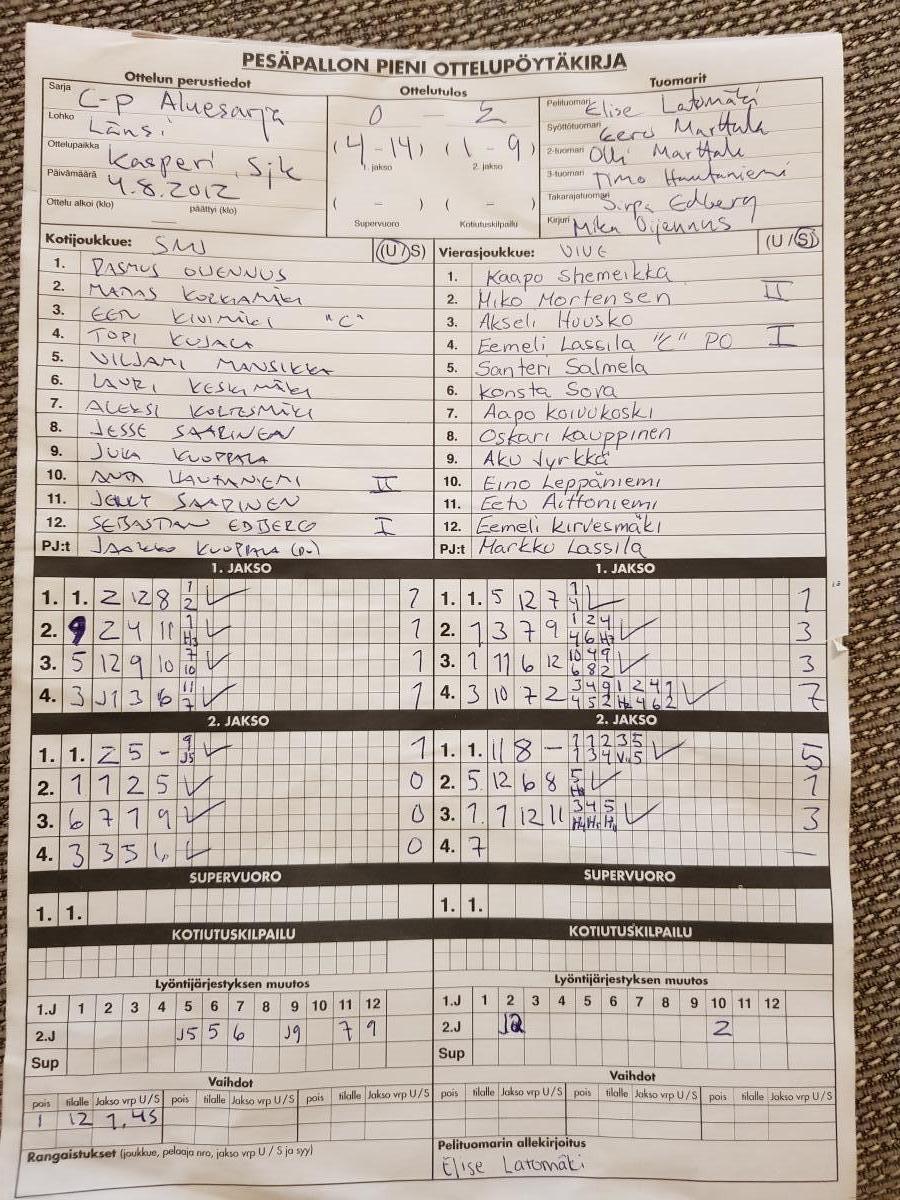 PESÄPALLON PIENI OTTELUPÖYTÄKIRJA
Ottelun perustiedot
Sarja C-P Aluesarja
Lohko Länsi
Ottelupaikka Kasperi, Sjk
Päivämäärä 4.8.2012
Ottelu alkoi (klo) — päättyi (klo)
Ottelutulos
0 — 2
(4-14) (1-9)
1. jakso 2. jakso
( - ) ( - )
Supervuoro Kotiutuskilpailu
Tuomarit
Pelituomari Elise Latomäki
Syöttötuomari Eero Marttala
2-tuomari Olli Marttala
3-tuomari Timo Hautaniemi
Takarajatuomari Sirpa Edberg
Kirjuri Mika
Kotijoukkue: SMJ (U/S)
1. RASMUS
2. MATIAS KORKIAMÄKI
3. EEN KIVIMÄKI "C"
4. TOPI KUJALA
5. VILJAMI MANSIKKA
6. LAURI KESKIMÄKI
7. ALEKSI
8. JESSE SAARINEN
9. JUKA KUOPPALA
10. HAUTANIEMI II
11. JERRY SAARINEN
12. SEBASTIAN EDBERG I
PJ:t JAAKKO KUOPPALA
Vierasjoukkue: VIVE (U/S)
1. Kaapo Shemeikka
2. Miko Mortensen II
3. Akseli Huusko
4. Eemeli Lassila "C" PO I
5. Santeri Salmela
6. Konsta Sova
7. Aapo Koivukoski
8. Oskari Kauppinen
9. Aku Jyrkkä
10. Eino Leppäniemi
11. Eetu Aittoniemi
12. Eemeli Kirvesmäki
PJ:t Markku Lassila
1. JAKSO
1. 1. 2 12 8 1 2 1
2. 9 2 4 11 1 H3 1
3. 5 12 9 10 7 10 1
4. 3 J1 3 6 11 7 1
1. JAKSO
1. 1. 5 12 7 1 4 1
2. 1 3 7 9 1 2 4 4 6 H7 3
3. 1 11 6 12 10 4 9 6 8 2 3
4. 3 10 7 2 3 4 9 1 2 4 1 4 5 2 H2 4 6 2 7
2. JAKSO
1. 1. 2 5 - 9 J5 1
2. 1 1 2 5 0
3. 6 7 1 9 0
4. 3 3 5 0
2. JAKSO
1. 1. 11 8 - 1 1 2 3 5 1 3 4 5 5
2. 5 12 6 8 5 1
3. 1 1 12 11 3 4 5 3
4. 7 —
SUPERVUORO
1. 1.
SUPERVUORO
1. 1.
KOTIUTUSKILPAILU
KOTIUTUSKILPAILU
Lyöntijärjestyksen muutos
1.J 1 2 3 4 5 6 7 8 9 10 11 12
2.J J5 5 6 J9 7 9
Sup
Lyöntijärjestyksen muutos
1.J 1 2 3 4 5 6 7 8 9 10 11 12
2.J 2
Sup
Vaihdot
pois tilalle Jakso vrp U/S pois tilalle Jakso vrp U/S pois tilalle Jakso vrp U/S
1 12 1,4S
Vaihdot
pois tilalle Jakso vrp U/S pois tilalle Jakso vrp U/S pois tilalle Jakso vrp U/S
Rangaistukset (joukkue, pelaaja nro, jakso vrp U / S ja syy)
Pelituomarin allekirjoitus
Elise Latomäki